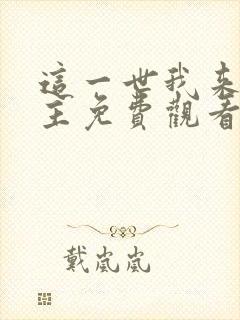 這一世我來
主免費觀看
戴嵐嵐